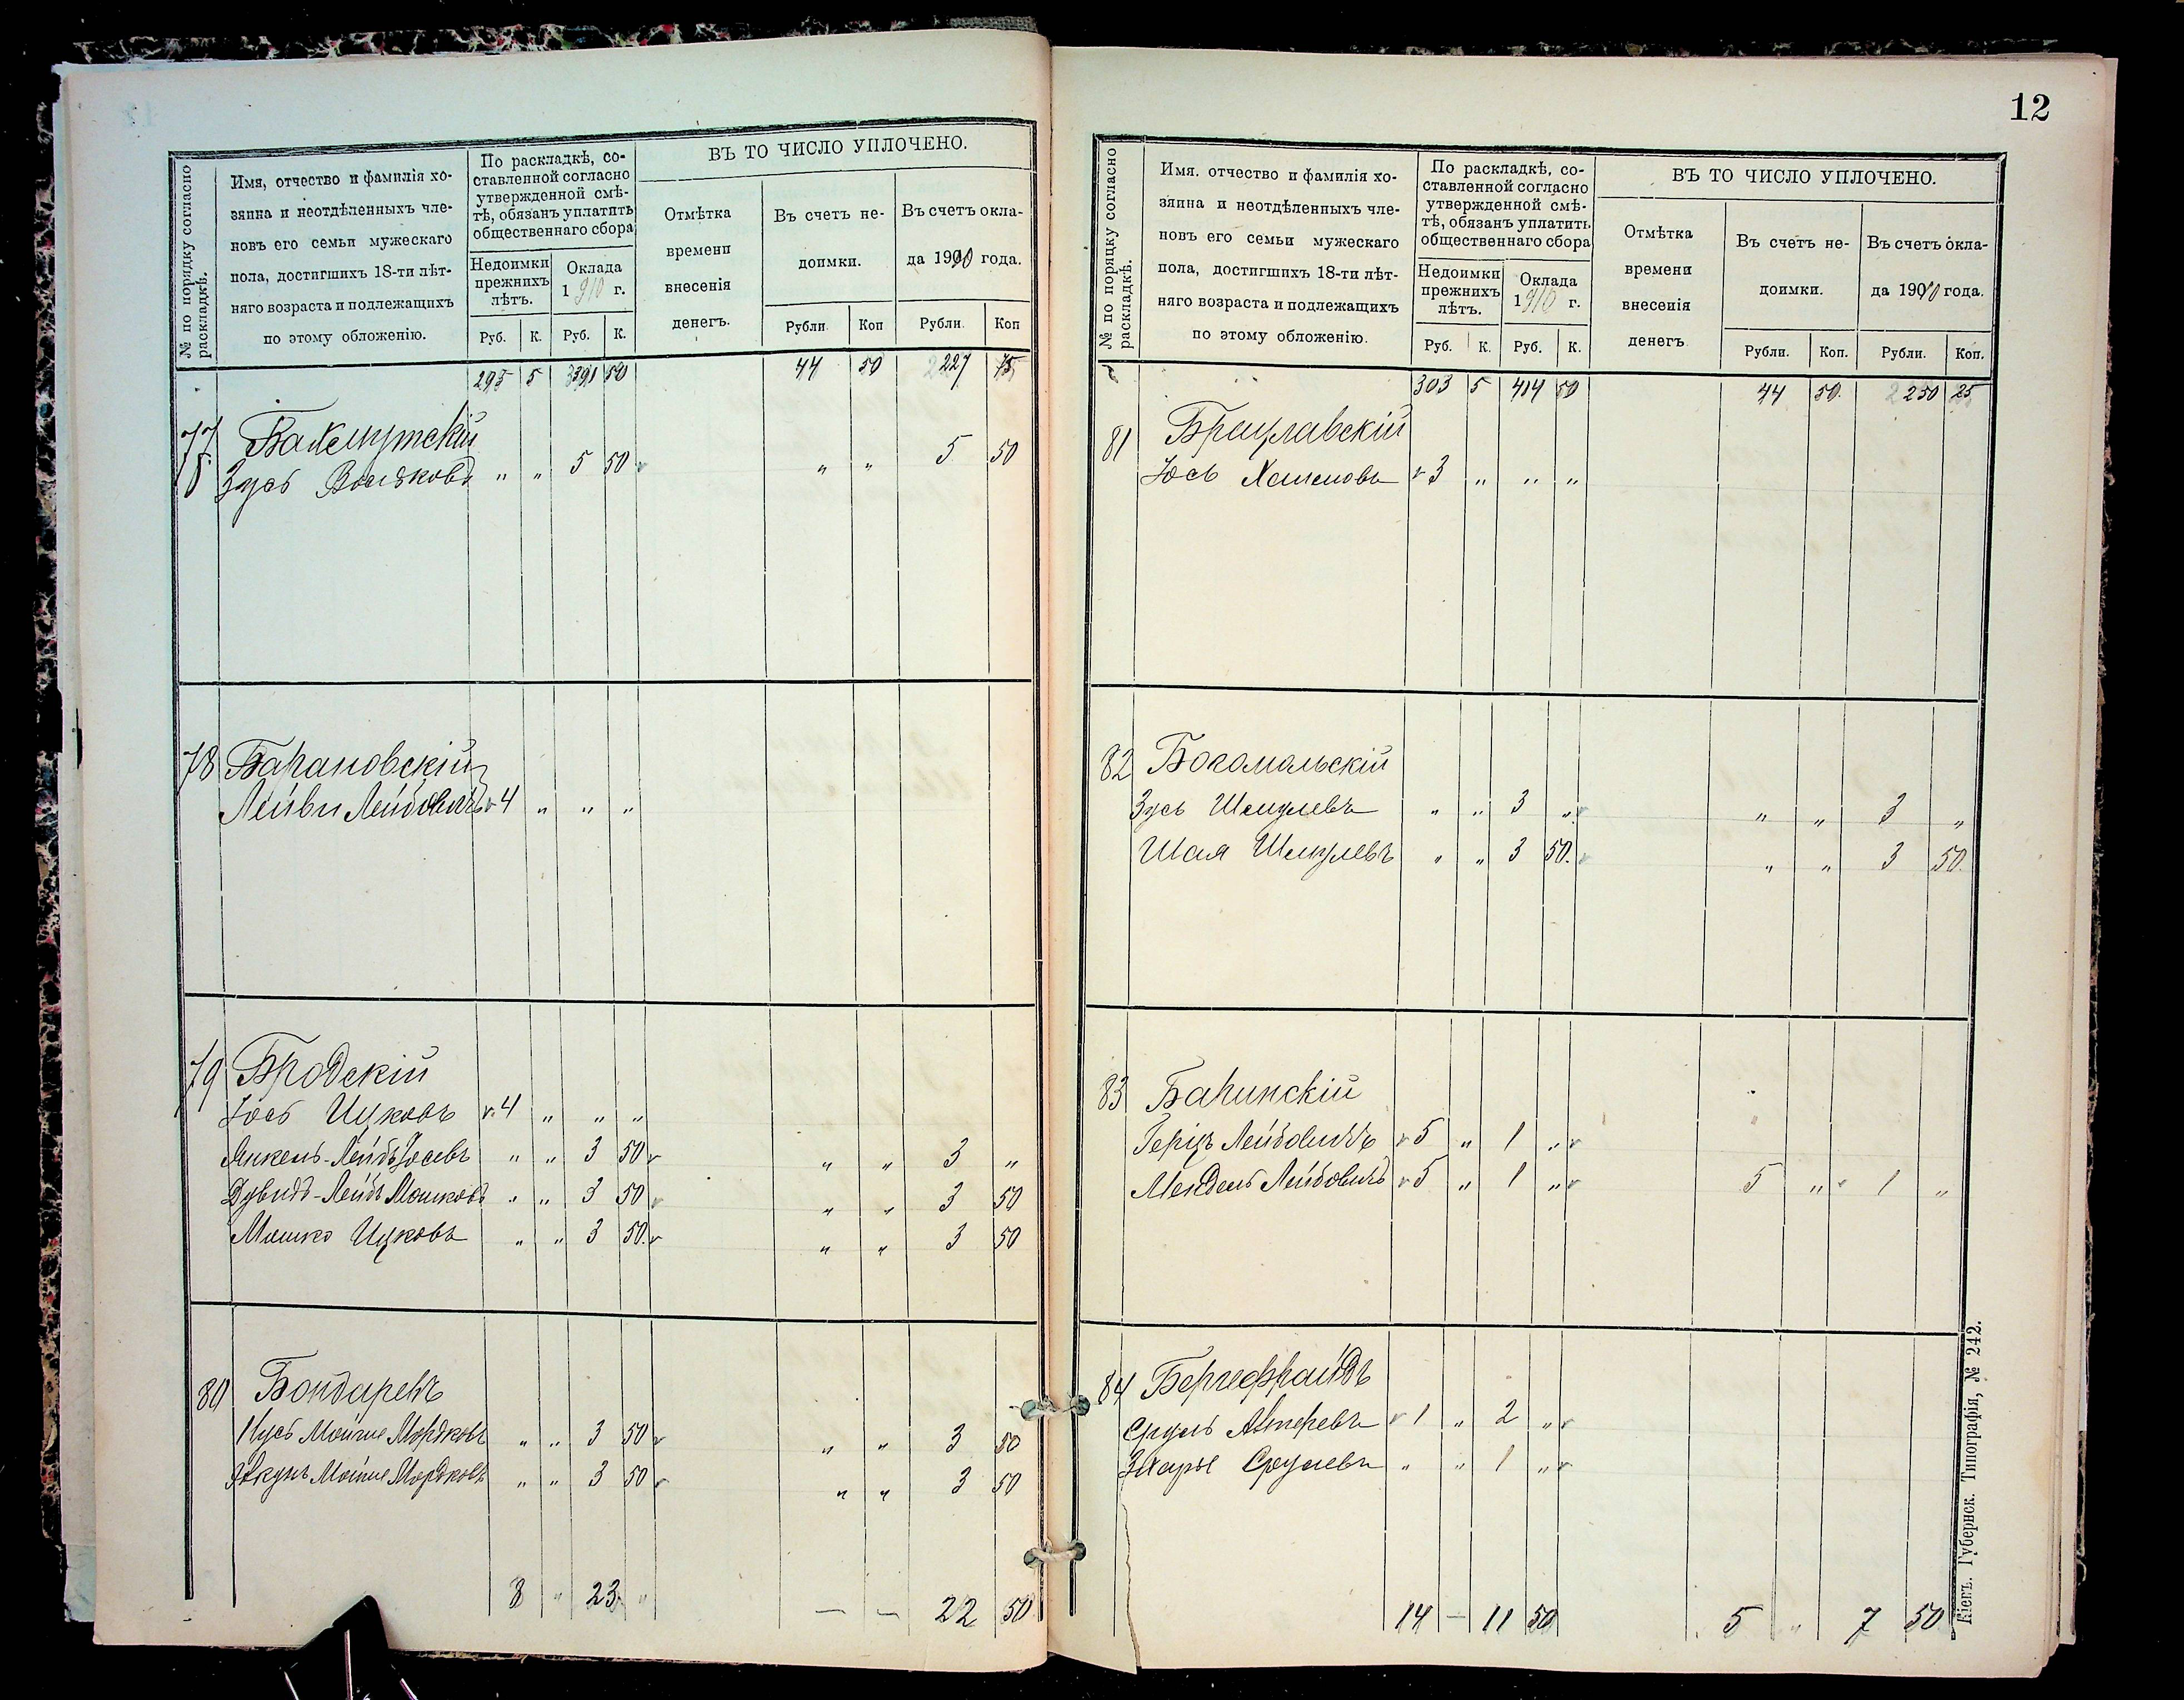 12
№ по порядку согласно раскладкѣ.
Имя, отчество и фамилія хо-
зяина и неотдѣленныхъ чле-
новъ его семьи мужескаго
пола, достигшихъ 18-ти лѣт-
няго возраста и подлежащихъ
по этому обложенію.
По раскладкѣ, со-
ставленной согласно
утвержденной смѣ-
тѣ, обязанъ уплатить
общественнаго сбора
Недоимки
прежнихъ
лѣтъ.
Оклада
1910 г.
Руб. К. Руб. К.
ВЪ ТО ЧИСЛО УПЛОЧЕНО.
Отмѣтка
времени
внесенія
денегъ.
Въ счетъ не-
доимки.
Въ счетъ окла-
да 1910 года.
Рубли. Коп Рубли. Коп
295 5 391 50 44 50 227 75
77 Бахмутскій
Зусь Вольковъ " " 5 50 " " 5 50
78 Барановскій
Лейви Лейбовичъ 4 " " "
79 Бродскій
Іось Ицковъ 4 " " "
Янкель-Лейбъ Іосевъ " " 3 50 " " 3 "
Дувидъ-Лейбъ Мошковъ " " 3 50 " " 3 50
Мошко Ицковъ " " 3 50. " " 3 50
80 Бондаревъ
Нусь Мойше Мордковъ " " 3 50 " " 3 50
Мойше Мордковъ " " 3 50 " " 3 50
8 " 23 " — — 22 50
№ по порядку согласно раскладкѣ.
Имя. отчество и фамилія хо-
зяина и неотдѣленныхъ чле-
новъ его семьи мужескаго
пола, достигшихъ 18-ти лѣт-
няго возраста и подлежащихъ
по этому обложенію.
По раскладкѣ, со-
ставленной согласно
утвержденной смѣ-
тѣ, обязанъ уплатить
общественнаго сбора
Недоимки
прежнихъ
лѣтъ.
Оклада
1910 г.
Руб. К. Руб. К.
ВЪ ТО ЧИСЛО УПЛОЧЕНО.
Отмѣтка
времени
внесенія
денегъ
Въ счетъ не-
доимки.
Въ счетъ окла-
да 1910 года.
Рубли. Коп. Рубли. Коп.
303 5 414 50 44 50. 250 25
81 Брацлавскій
Іось Хаимовъ 3 " " "
82 Богомольскій
Зусь Шмулевъ " " 3 " " " 3 "
Шая Шмулевъ " " 3 50. " " 3 50.
83 Баринскій
Герцъ Лейбовичъ 5 " 1 "
Мендель Лейбовичъ 5 " 1 " 5 " 1 "
84 Бергефрайдъ
Сруль Алтеревъ 1 " 2 "
Срулевъ " " 1 "
14 — 11 50 5 " 7 50
Кіевъ. Губернск. Типографія, № 242.